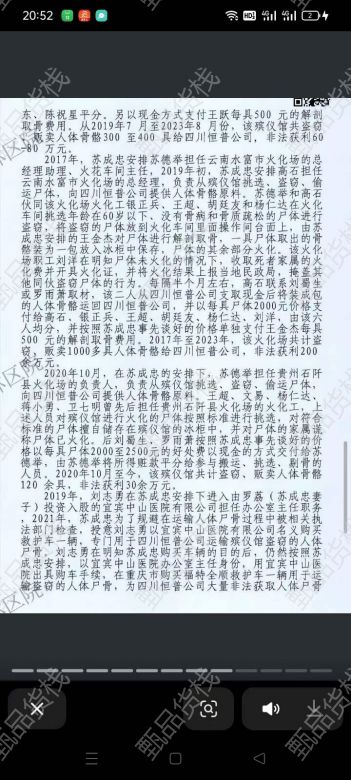 20:52
HD 4G 4G 2
东、陈祝星平分。另以现金方式支付王跃每具500 元的解剖
取骨费用。从2019年7 月至2023年8 月份，该殡仪馆共盗窃
、贩卖人体骨骼300 至400 具给四川恒普公司，非法获利60
-80 万元。
2017年，苏成忠安排苏德举担任云南水富市火化场的总
经理助理、火花车间主任，2019年初，苏成忠安排高石担任
云南水富市火化场的总经理，负责从殡仪馆挑选、盗窃、偷
运尸体，向四川恒普公司提供人体骨骼原料。苏德举和高石
伙同该火化场火化工银正兵、王超、胡廷友和杨仁达在火化
车间挑选年龄在60岁以下、没有骨病和骨质疏松的尸体进行
盗窃，将盗窃的尸体放到火化车间里面操作间台面上，由苏
成忠安排的王金杰对尸体进行解剖取骨，一具尸体取出的骨
骼装一包放入冰柜中保存，尸体的其余部分火化。该火化
场职工刘洋在明知尸体未火化的情况下，收取死者家属的火
化费并开具火化证，并将火化结果上报当地民政局，掩盖其
他同伙盗窃尸体的行为。每隔半个月左右，高石联系刘蜀生
或罗雨萧取材，该二人从四川恒普公司支取现金后将装成包
的人体骨骼运回四川恒普公司，并以每具尸体2000元价格支
付给高石、银正兵、王超、胡廷友、杨仁达、刘洋，由该六
人均分，并按照苏成忠事先谈好的价格单独支付王金杰每具
500 元的解剖取骨费用。2017年至2023年，该火化场共计盗
窃、贩卖1000多具人体骨骼给四川恒普公司，非法获利200
余万元。
2020年10月，在苏成忠的安排下，苏德举担任贵州石阡
县火化场的负责人，负责从殡仪馆挑选、盗窃、偷运尸体，
向四川恒普公司提供人体骨骼原料。王超、文易、杨仁达、
蒋小勇、卫七明曾先后担任贵州石阡县火化场的火化工，上
述人员对殡仪馆进行火化的尸体按照标准进行挑选，对符合
标准的尸体擅自储存在殡仪馆的冰柜中，并对尸体的家属谎
称尸体已火化。后刘蜀生、罗雨萧按照苏成忠事先谈好的价
格以每具尸体2000至2500元的好处费以现金的方式交付给苏
德举，由苏德举将所得赃款平分给参与搬运、挑选、剔骨的
人员，2020年10月至今，该殡仪馆共计盗窃、贩卖人体骨骼
120 余具，非法获利30余万元。
2019年，刘志勇在苏成忠安排下进入由罗荔（苏成忠妻
子）投资入股的宜宾中山医院有限公司担任办公室主任职务
，2021年，苏成忠为了规避在运输人体尸骨过程中被相关执
法部门检查，授意刘志勇以宜宾中山医院有限公司名义购买
救护车一辆，专门用于四川恒普公司运输殡仪馆盗窃的人体
尸骨，刘志勇在明知苏成忠购买车辆的目的后，仍然按照苏
成忠安排，以宜宾中山医院办公室主任身份，用宜宾中山医
院出具购车手续，在重庆市购买福特全顺救护车一辆用于运
输盗窃的人体尸骨，为四川恒普公司大量非法获取人体尸骨
甄品货栈